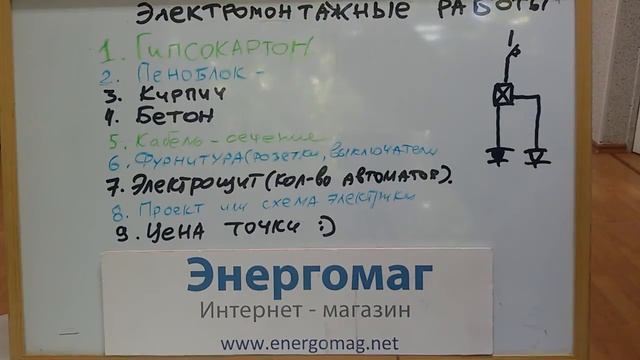 Электромонтажные работы
1. Гипсокартон
2. Пеноблок -
3. Кирпич
4. Бетон
5. Кабель - сечение
6. Фурнитура (розетки, выключатели
7. Электрощит (кол-во автоматов).
8. Проект или схема электрики
9. Цена точки :)
Энергомаг
Интернет - магазин
www.energomag.net